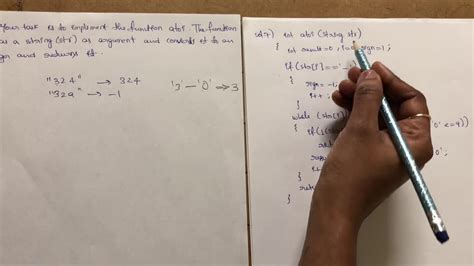 Your task is to implement the function atoi. The function
as a string (str) as argument and converts it to an
gn and returns it.
"324" → 324
"32a" → -1
'3 - '0' ⇒ 3
int atoi (string str)
{
int result=0,
sign=1;
if (str[i]=='-
sign = -1;
i++;
while (str[i]
{
if (!(str
0' <=9))
ret
resu
0';
i++
}
ret
}